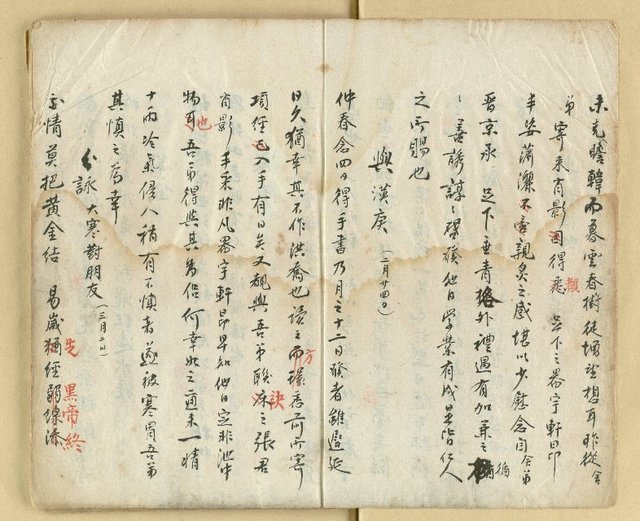 未克瞻韓而暮雲春樹徒增遐想耳昨從舍
弟寄來肖影因得悉足下之器宇軒昂
丰姿瀟灑不啻親炙之感堪以少慰念自舍弟
晉京承足下垂青格外禮遇有加兼之
善誘諄諄將後他日學業有成是皆仁人
之所賜也
與漢庚(二月廿四日)
仲春念四日得手書乃月之十二日發者雖遲延
日久猶幸其不作洪喬也讀之而後方悉前所寄
項經已入手有日矣又觀與吾弟聯袂之張君
肖影手采非凡器宇軒昂早知他日定非池中
物也吾弟得與其為侶何幸如之適來一晴
十雨冷氣侵人稍有不慎者遂被寒胃吾弟
其慎之為幸
詠大寒對朋友(三月二日)
無情莫把黃金結易歲猶經弱線添
先 黑帝終